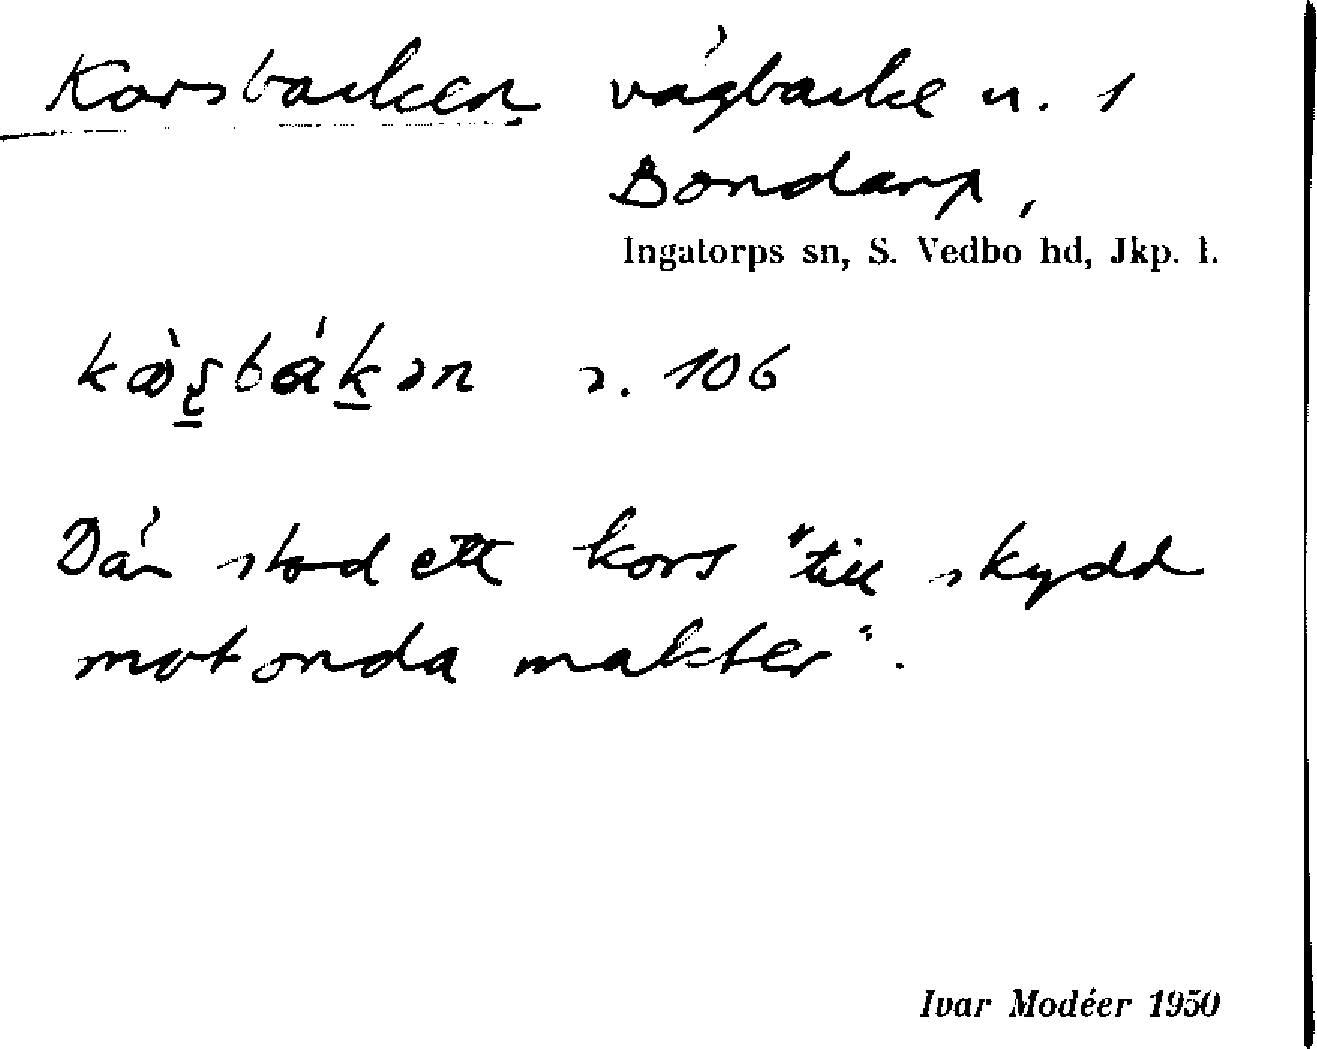 Korsbacken vägbacke n. 1
Bondarp,
Ingatorps sn, S. Vedbo hd, Jkp. l.
s. 106
Där stod ett kors "till skydd
mot onda makter".
Ivar Modéer 1950